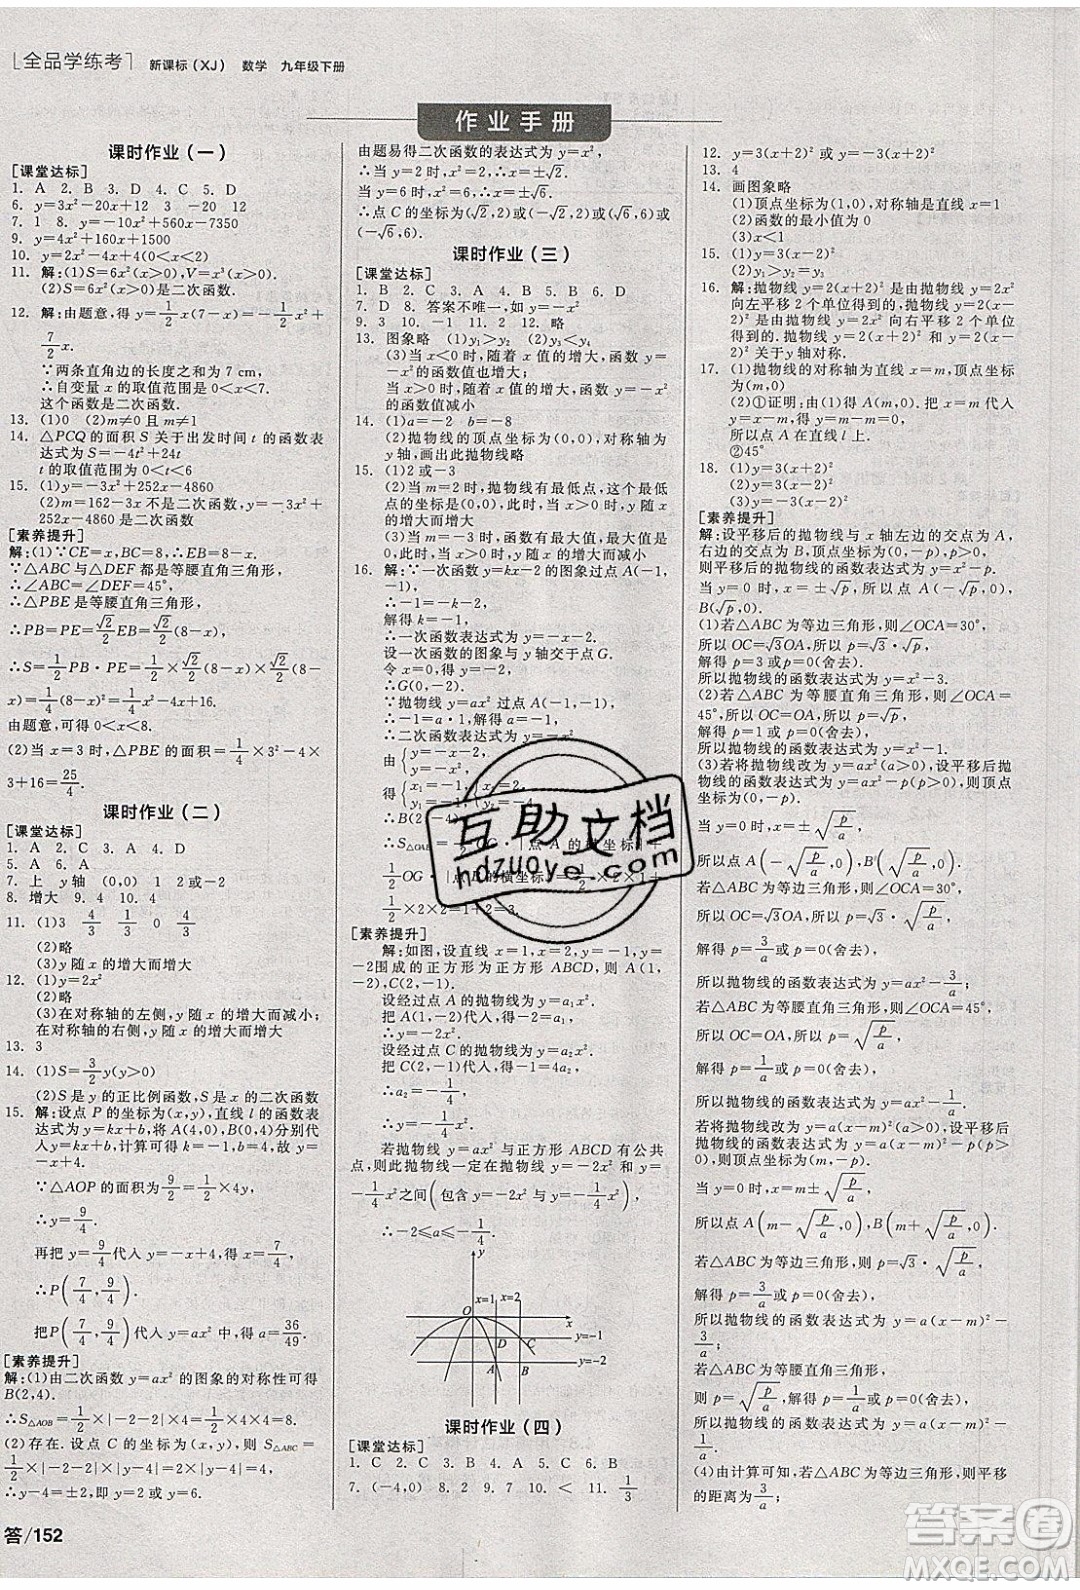 [全品学练考] 新课标(XJ) 数学 九年级下册
作业手册
课时作业(一)
[课堂达标]
1. A 2. B 3. A 4. D 5. D
6. y=3x²-12x+12 3 -20 12
7. 1 8. y=-10x²+560x-7350
9. y=4x²+160x+1500
10. y=2x²-4x+4(0<x<2)
11. 解:(1)S=6x²(x>0),V=x³(x>0).
(2)S=6x²(x>0)是二次函数.
12. 解:由题意,得 y=1/2x(7-x)=-1/2x²+
7/2x.
∵两条直角边的长度之和为 7 cm,
∴自变量 x 的取值范围是 0<x<7.
这个函数是二次函数.
13. (1)0 (2)m≠0 且 m≠1
14. △PCQ的面积 S 关于出发时间 t 的函数表
达式为 S=-4t²+24t
t 的取值范围为 0<t<6
15. (1)y=-3x²+252x-4860
(2)m=162-3x 不是二次函数,y=-3x²
+252x-4860 是二次函数
[素养提升]
解:(1)∵CE=x,BC=8,∴EB=8-x.
∵△ABC 与△DEF 都是等腰直角三角形,
∴∠ABC=∠DEF=45°,
∴△PBE 是等腰直角三角形,
∴PB=PE=√2/2EB=√2/2(8-x),
∴S=1/2PB·PE=1/2×√2/2(8-x)×√2/2(8-
x)=1/4(8-x)²=1/4x²-4x+16.
由题意,可得 0<x<8.
(2)当 x=3 时,△PBE 的面积=1/4×3²-4×
3+16=25/4.
课时作业(二)
[课堂达标]
1. A 2. C 3. A 4. D
5. A 6. A
7. 上 y轴 (0,0) 1 2或-2
8. 增大 9. 4 10. 4
11. (1)3 4/3 1/3 0 4/3
(2)略
(3)y 随 x 的增大而增大
12. (1)y=2x²
(2)略
(3)在对称轴的左侧,y 随 x 的增大而减小;
在对称轴的右侧,y 随 x 的增大而增大
13. 3
14. (1)S=3/2y(y>0)
(2)S 是 y 的正比例函数,S是 x 的二次函数
15. 解:设点 P 的坐标为(x,y),直线 l 的函数表
达式为 y=kx+b,将 A(4,0),B(0,4)分别代
入 y=kx+b,计算可得 k=-1,b=4,故 y=
-x+4.
∵△AOP 的面积为 9/2=1/2×4y,
∴y=9/4.
再把 y=9/4 代入 y=-x+4,得 x=7/4,
∴P(7/4,9/4).
把P(7/4,9/4)代入 y=ax² 中,得 a=36/49.
[素养提升]
解:(1)由二次函数 y=ax² 的图象的对称性可得
B(2,4).
∴S△AOB=1/2×|-2-2|×4=1/2×4×4=8.
(2)存在.设点 C 的坐标为(x,y),则 S△ABC=
1/2×|-2-2|×|4-y|=1/2×8,
∴y-4=±2,∴y=6 或 y=2.
由题易得二次函数的表达式为 y=x²,
∴当 y=2 时,x²=2,∴x=±√2.
当 y=6 时,x²=6,∴x=±√6.
∴点 C 的坐标为(√2,2)或(-√2,2)或(√6,6)或
(-√6,6).
课时作业(三)
[课堂达标]
1. B 2. C 3. A 4. B 5. B 6. D
7. D 8. 答案不唯一,如 y=-x²
9. 3 10. -1 11. 2 12. 略
13. 图象略 (1)y₁>y₂ (2)y₃<y₄
(3)当 x<0 时,随着 x 值的增大,函数 y=
-x²的函数值也增大;
当 x>0 时,随着 x 值的增大,函数 y=-x²的
函数值减小
14. (1)a=-2 b=-8
(2)抛物线的顶点坐标为(0,0),对称轴为
y 轴,画出此抛物线略
15. (1)2 或-3
(2)当 m=2 时,抛物线有最低点,这个最低
点的坐标是(0,0),此时,当 x>0 时,y 随 x
的增大而增大
(3)当 m=-3 时,函数有最大值,最大值是
0,此时,当 x>0 时,y 随 x 的增大而减小
16. 解:∵一次函数 y=kx-2 的图象过点 A(-1,
-1),
∴-1=-k-2,
解得 k=-1,
∴一次函数表达式为 y=-x-2.
设一次函数的图象与 y 轴交于点 G.
令 x=0,得 y=-2,
∴G(0,-2).
∵抛物线 y=ax² 过点 A(-1,-1),
∴-1=a·1,解得 a=-1,
∴二次函数表达式为 y=-x².
由{y=-x-2,
得{x₁=-1, y₁=-1,
∴B(2,-4).
∴S△OAB=1/2OG·|点 A 的横坐标|+
1/2OG·|点B的横坐标|=1/2×2×1+
1/2×2×2=1+2=3.
[素养提升]
解:如图,设直线 x=1,x=2,y=-1,y=
-2围成的正方形为正方形 ABCD,则 A(1,
-2),C(2,-1).
设经过点 A 的抛物线为 y=a₁x².
把 A(1,-2)代入,得 a₁=-2,
∴y=-2x².
设经过点 C 的抛物线为 y=a₂x².
把 C(2,-1)代入,得-1=4a₂,
∴a₂=-1/4,
∴y=-1/4x².
若抛物线 y=ax² 与正方形 ABCD 有公共
点,则此抛物线一定在抛物线 y=-2x² 和 y=
-1/4x²之间(包含 y=-2x² 与 y=-1/4x²),
∴-2≤a≤-1/4.
y
x=1 x=2
O x
y=-1
D C
y=-2
A B
课时作业(四)
[课堂达标]
1. C 2. C 3. B 4. C 5. C 6. B
7. (-4,0) 8. 2 9. 7 10. < 11. 1/3
12. y=3(x+2)² 或 y=-3(x+2)²
13. 4
14. 画图象略
(1)顶点坐标为(1,0),对称轴为直线 x=1
(2)函数的最小值为 0
(3)x<1
15. (1)y=3(x-2)²
(2)y₁>y₃>y₂
16. 解:抛物线 y=2(x+2)² 是由抛物线 y=2x²
向左平移 2 个单位得到的,抛物线 y=2(x-
2)² 是由抛物线 y=2x² 向右平移 2 个单位
得到的.抛物线 y=2(x+2)² 与 y=2(x-
2)² 关于 y 轴对称.
17. (1)抛物线的对称轴为直线 x=m,顶点坐标
为(m,0)
(2)①证明:由(1)得 A(m,0).把 x=m 代入
y=x-m,得 y=m-m=0,
所以点 A 在直线 l 上.
②45°
18. (1)y=3(x-2)²
(2)y=-3(x-2)²
[素养提升]
解:设平移后的抛物线与 x 轴左边的交点为 A,
右边的交点为 B,顶点为 C.
则平移后的抛物线的函数表达式为 y=x²-p.
当 y=0 时,x=±√p,所以点 A(-√p,0),
B(√p,0).
(1)若△ABC 为等边三角形,则∠OCA=30°,
所以 OC=√3OA,所以 p=√3·√p,
解得 p=3 或 p=0(舍去).
所以抛物线的函数表达式为 y=x²-3.
(2)若△ABC 为等腰直角三角形,则∠OCA=
45°,所以 OC=OA,所以 p=√p,
解得 p=1 或 p=0(舍去).
所以抛物线的函数表达式为 y=x²-1.
(3)若将抛物线改为 y=ax²(a>0),设平移后抛
物线的函数表达式为 y=ax²-p(p>0),则顶点
C(0,-p).
当 y=0 时,x=±√(p/a),
所以点 A(-√(p/a),0),B(√(p/a),0).
若△ABC 为等边三角形,则∠OCA=30°,
所以 OC=√3OA,所以 p=√3·√(p/a),
解得 p=3/a或 p=0(舍去).
所以抛物线的函数表达式为 y=ax²-3/a.
若△ABC 为等腰直角三角形,则∠OCA=45°,
所以 OC=OA,所以 p=√(p/a),
解得 p=1/a或 p=0(舍去).
所以抛物线的函数表达式为 y=ax²-1/a.
若将抛物线改为 y=a(x-m)²,设平移后
抛物线的函数表达式为 y=a(x-m)²-p,则
顶点坐标为(m,-p).
当 y=0 时,x=m±√(p/a),
所以点 A(m-√(p/a),0),B(m+√(p/a),0).
若△ABC 为等边三角形,则 p=√3·√(p/a),
解得 p=3/a或 p=0(舍去),
所以抛物线的函数表达式为 y=a(x-m)²-3/a.
若△ABC 为等腰直角三角形,
则 p=√(p/a),解得 p=1/a或 p=0(舍去),
所以抛物线的函数表达式为 y=a(x-m)²-1/a.
(4)由计算可知,若△ABC 为等边三角形,则平移
的距离为3/a;若△ABC 为等腰直角三角形,则平移
的距离为1/a.
答/152
互助文档
hdzuoye.com
答案圈
MXQE.COM